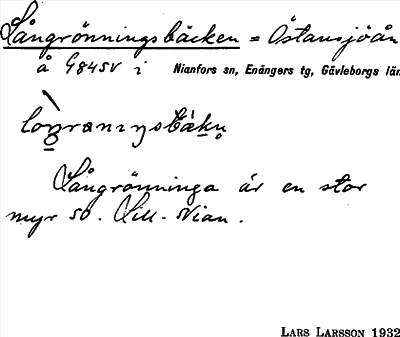 Långrönningsbäcken = Östansjöån
å G845V i Nianfors sn, Enångers tg, Gävleborgs län
Långrönninga är en stor
myr so. Lill-Nian.
LARS LARSSON 1932